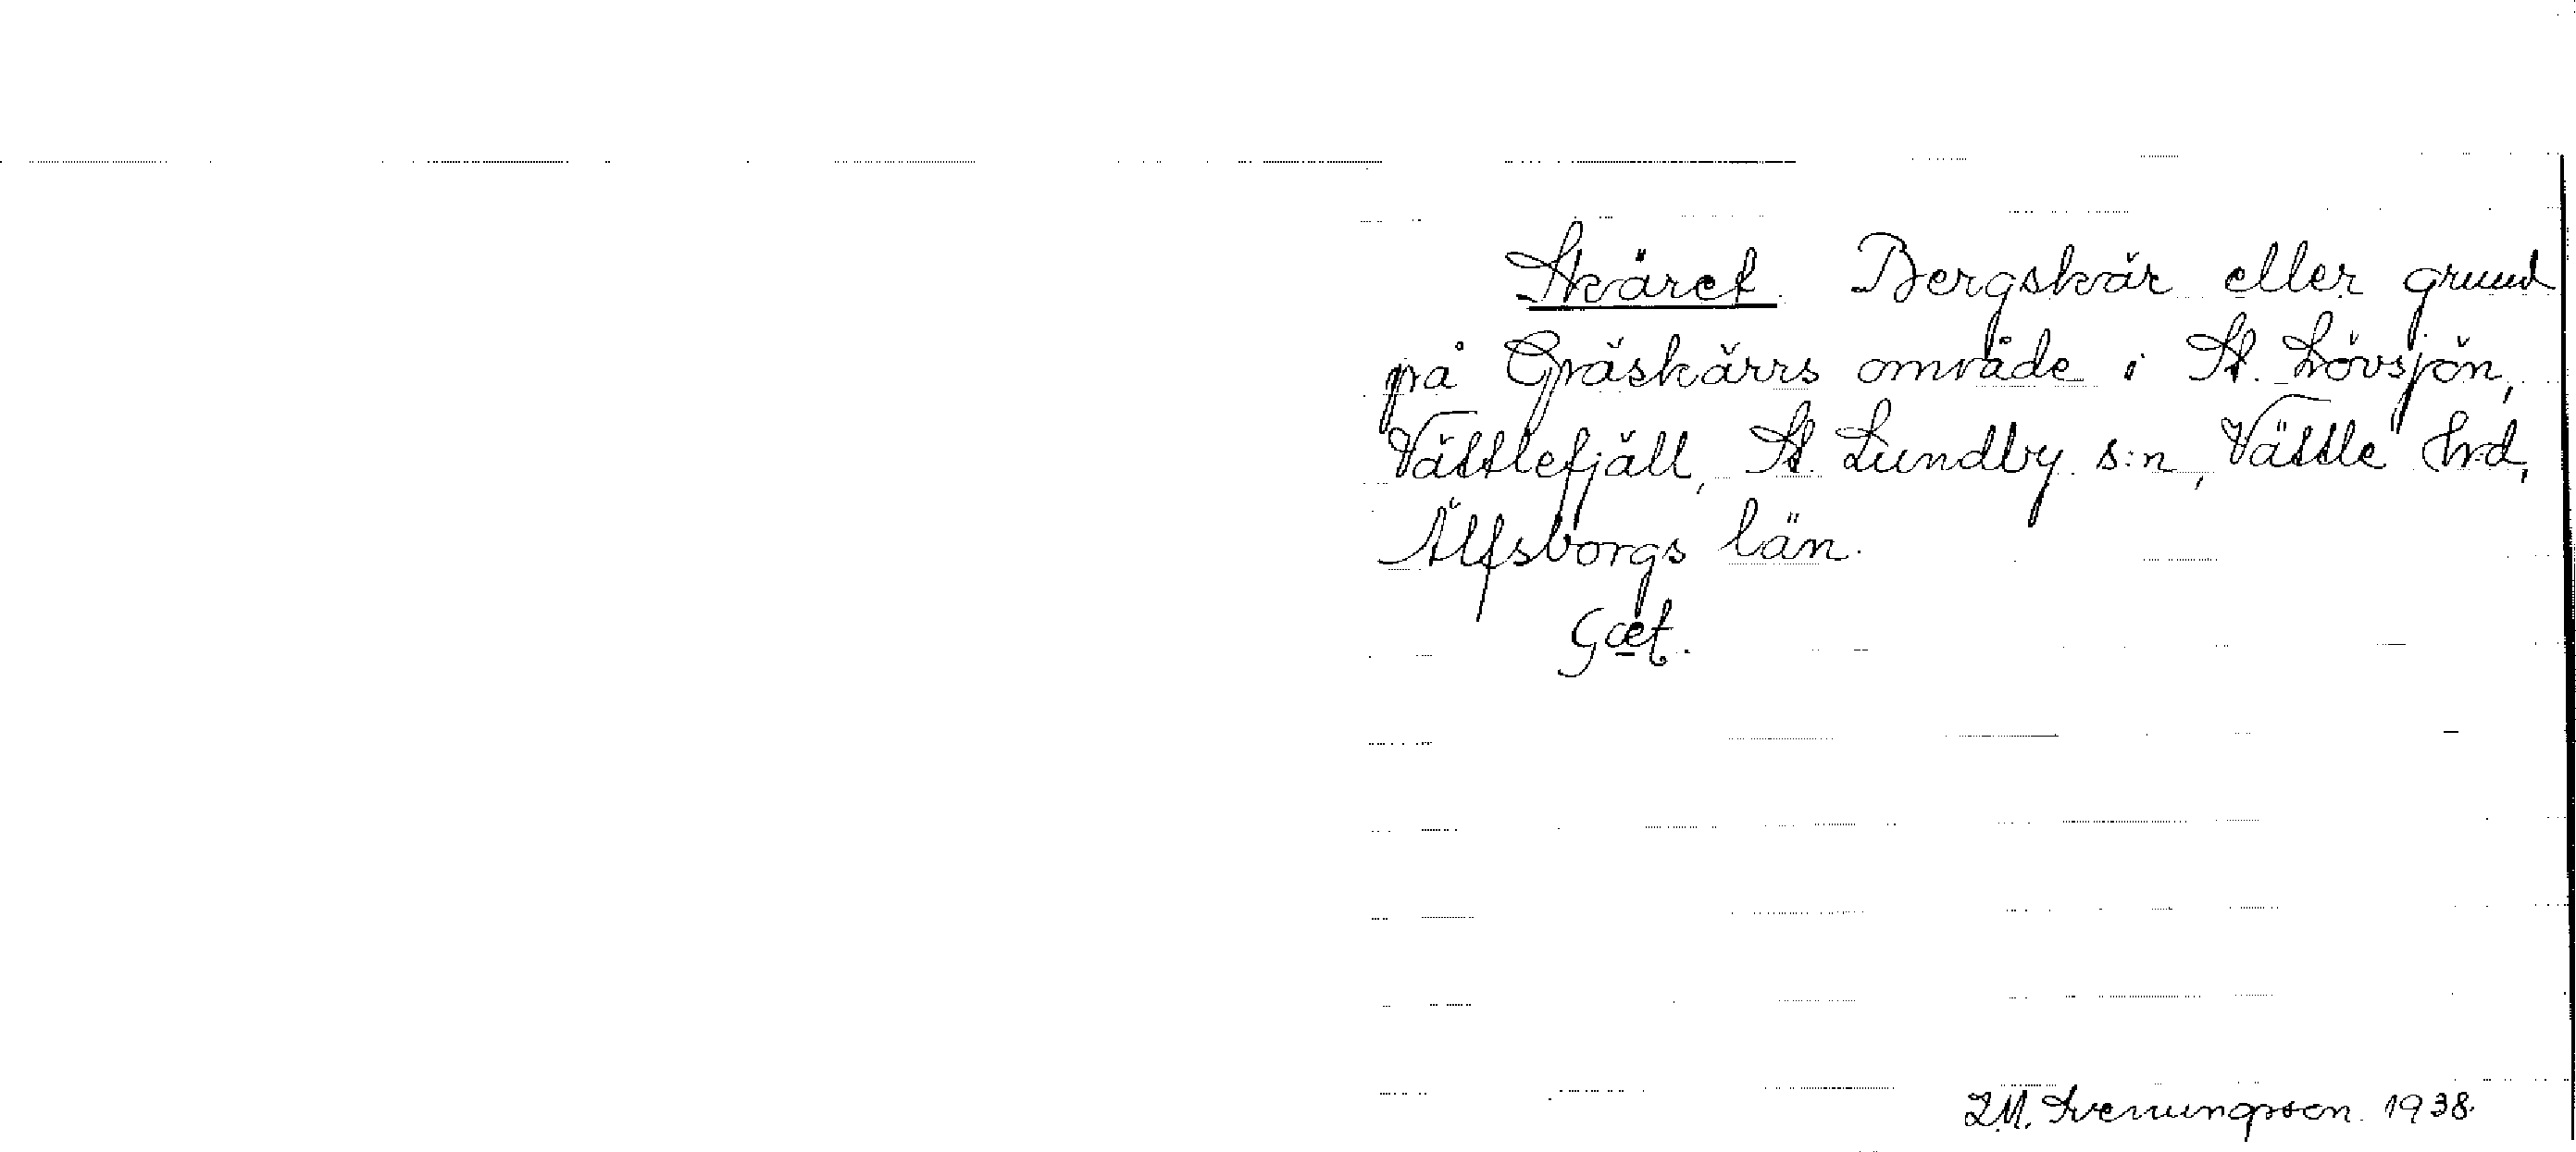 Skäret. Bergskär eller grund
på Gräskärrs område i St. Lövsjön,
Vättlefjäll, St. Lundby s:n, Vättle hrd,
Älfsborgs län.
Gæt.
L.M. Svenungsson. 1938.